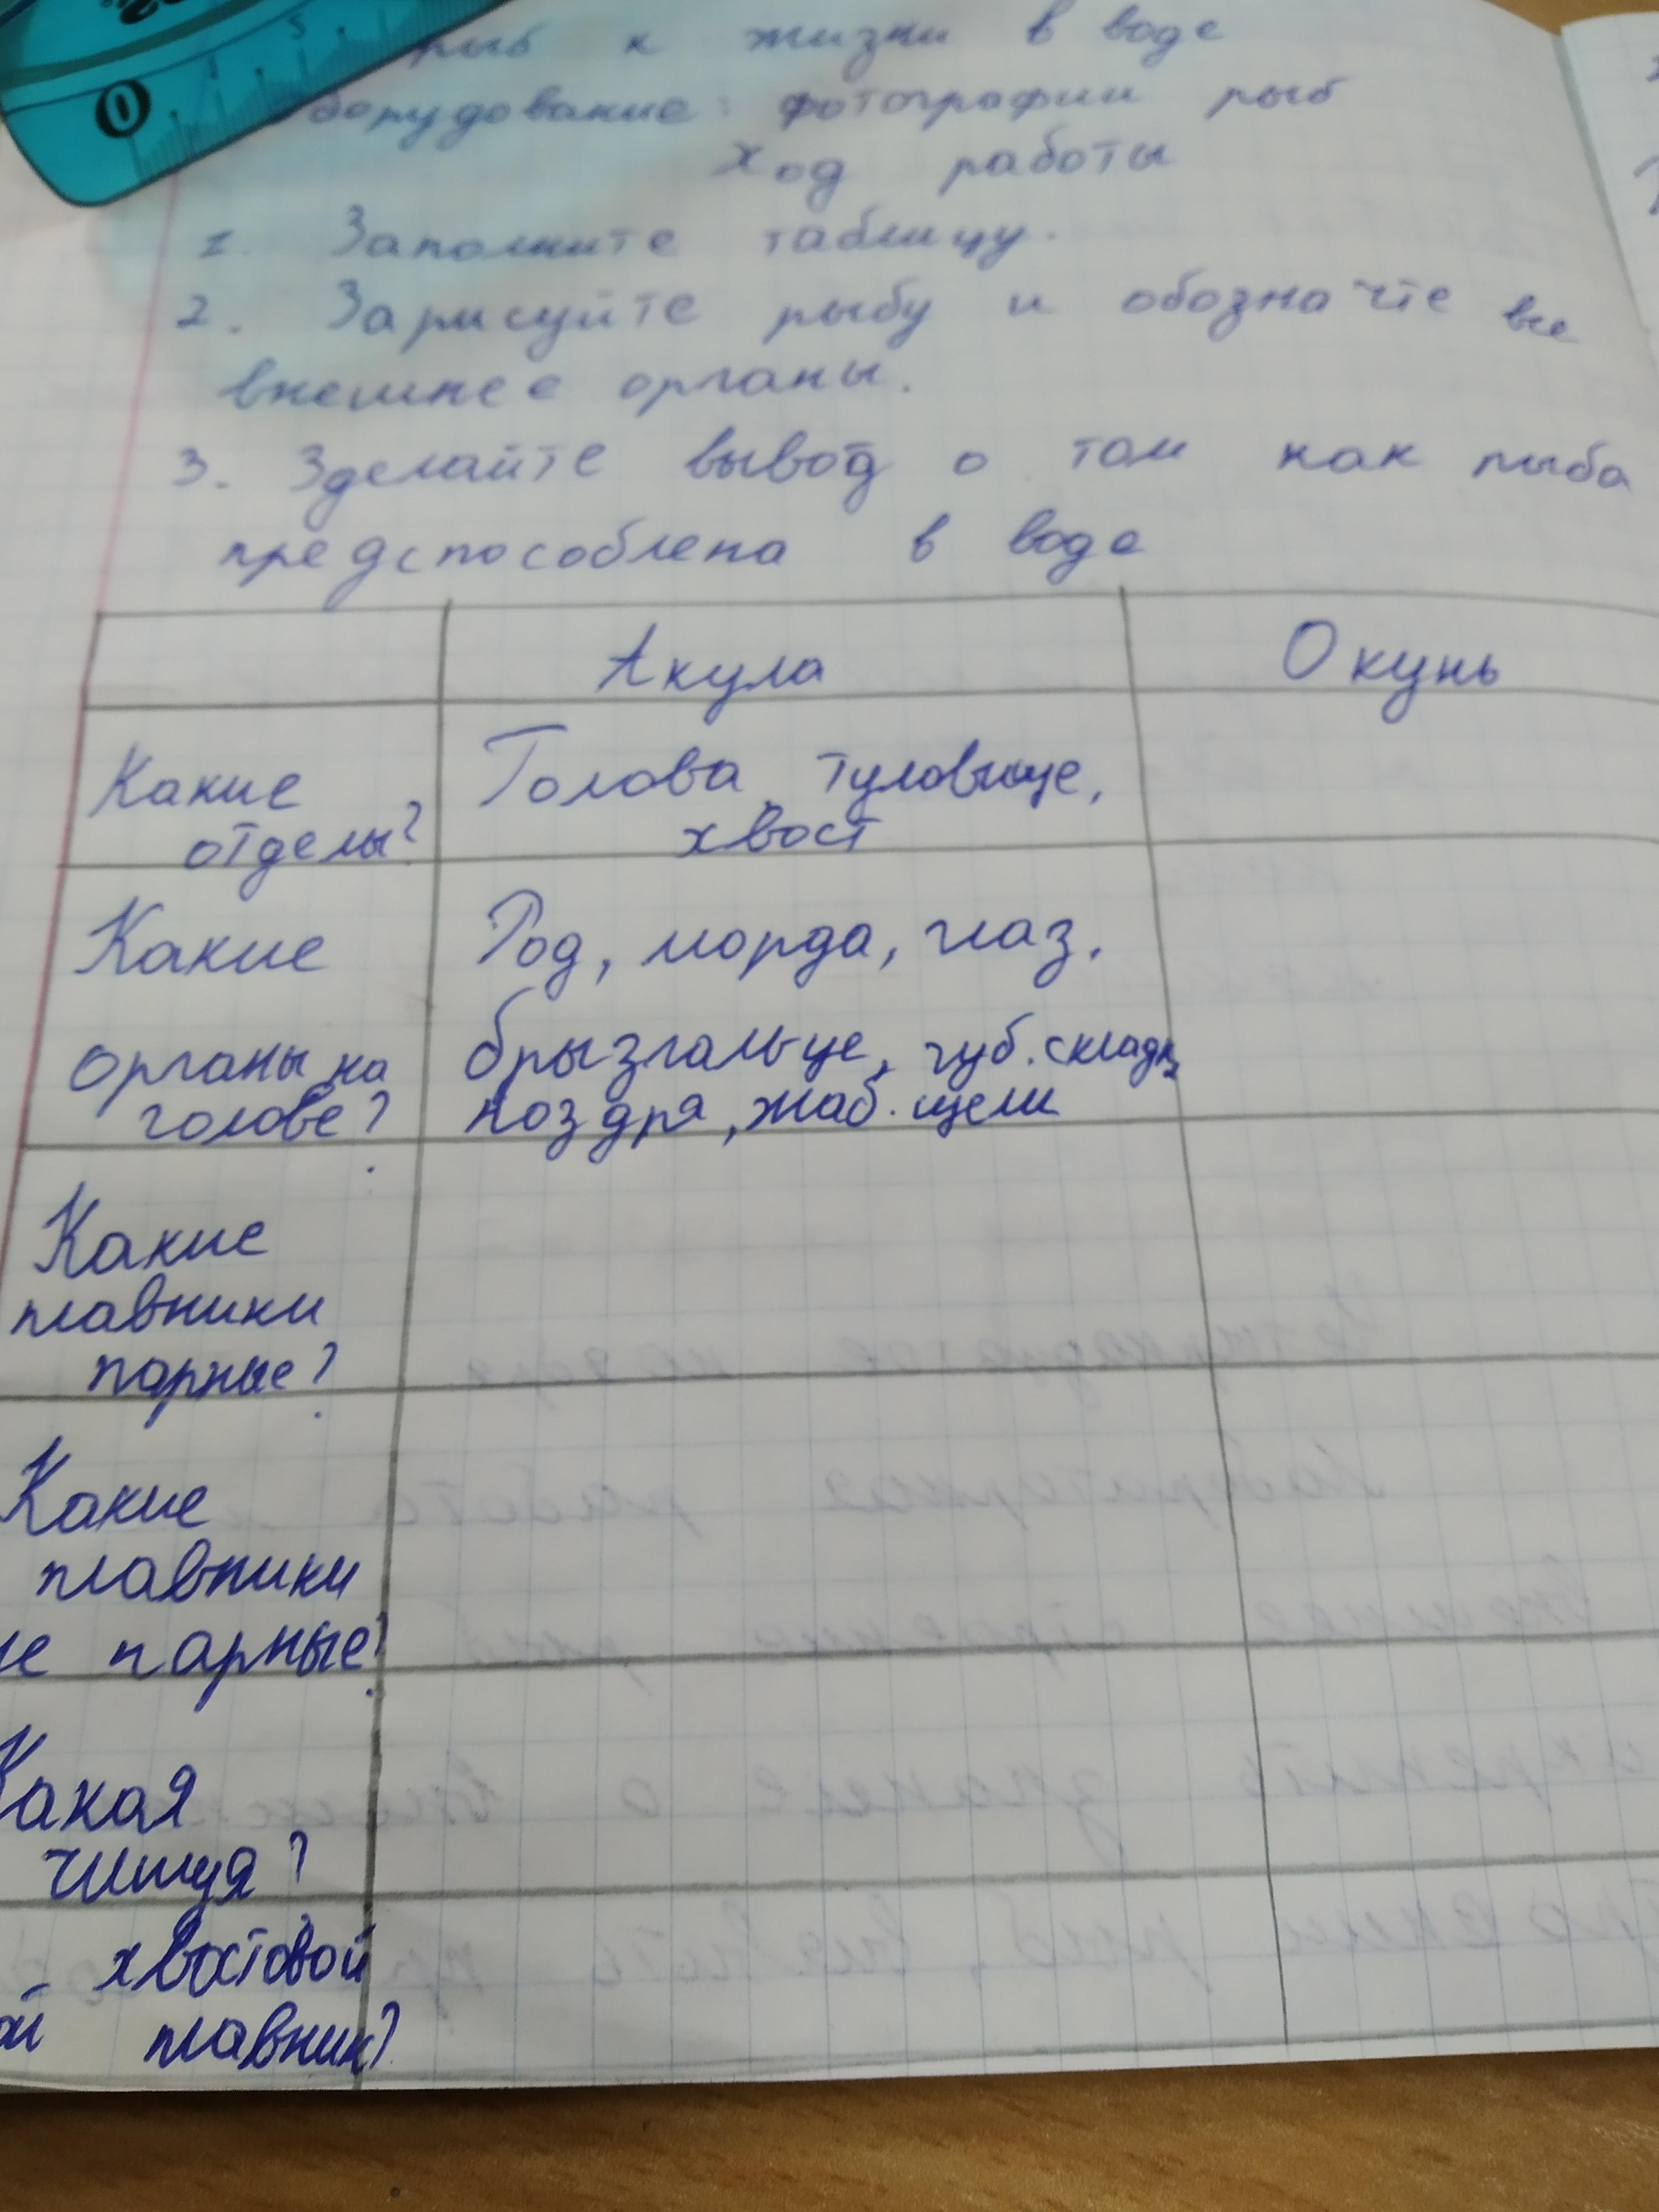 рыб к жизни в воде
борудование: фотографии рыб
Ход работы
1. Заполните таблицу.
2. Зарисуйте рыбу и обозначте все
внешнее органы.
3. Зделайте вывод о том как рыба
предспособлена в воде
Акула Окунь
Какие отделы? Голова, туловище, хвост
Какие органы на голове? Род, морда, глаз, брызгальце, губ. складк, ноздря, жаб. щели
Какие плавники парные?
Какие плавники не парные?
Какая чишуя?
ой хвостовой плавник?
0
5